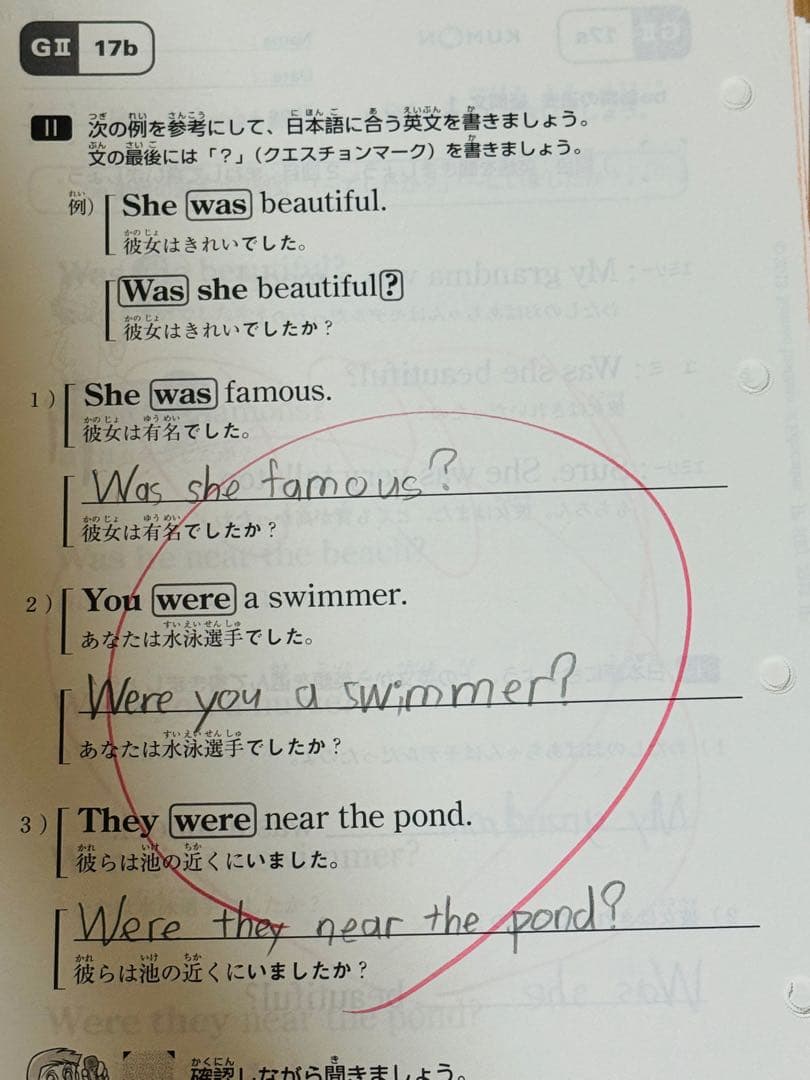 GⅡ 17b
Ⅱ 次の例を参考にして、日本語に合う英文を書きましょう。
文の最後には「?」(クエスチョンマーク)を書きましょう。
例) She was beautiful.
彼女はきれいでした。
Was she beautiful?
彼女はきれいでしたか?
1) She was famous.
彼女は有名でした。
Was she famous?
彼女は有名でしたか?
2) You were a swimmer.
あなたは水泳選手でした。
Were you a swimmer?
あなたは水泳選手でしたか?
3) They were near the pond.
彼らは池の近くにいました。
Were they near the pond?
彼らは池の近くにいましたか?
確認しながら聞きましょう。